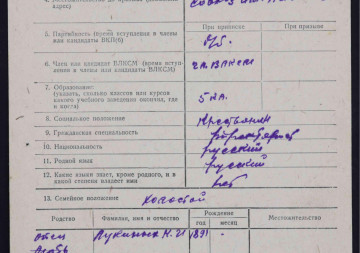 адрес)
При приписке
При призыве
5. Партийность (время вступления в члены
или кандидаты ВКП(б)
б/п.
6. Член или кандидат ВЛКСМ (время вступ-
ления в члены или кандидаты ВЛКСМ)
чл. ВЛКСМ
7. Образование:
(указать, сколько классов или курсов
какого учебного заведения окончил, где
и когда)
5 кл.
8. Социальное положение
Крестьянин
9. Гражданская специальность
10. Национальность
русский
11. Родной язык
русский
12. Какие языки знает, кроме родного, и в
какой степени владеет ими
нет
13. Семейное положение
холостой
Родство
Фамилия, имя и отчество
Рождение
год
месяц
Местожительство
отец
1891